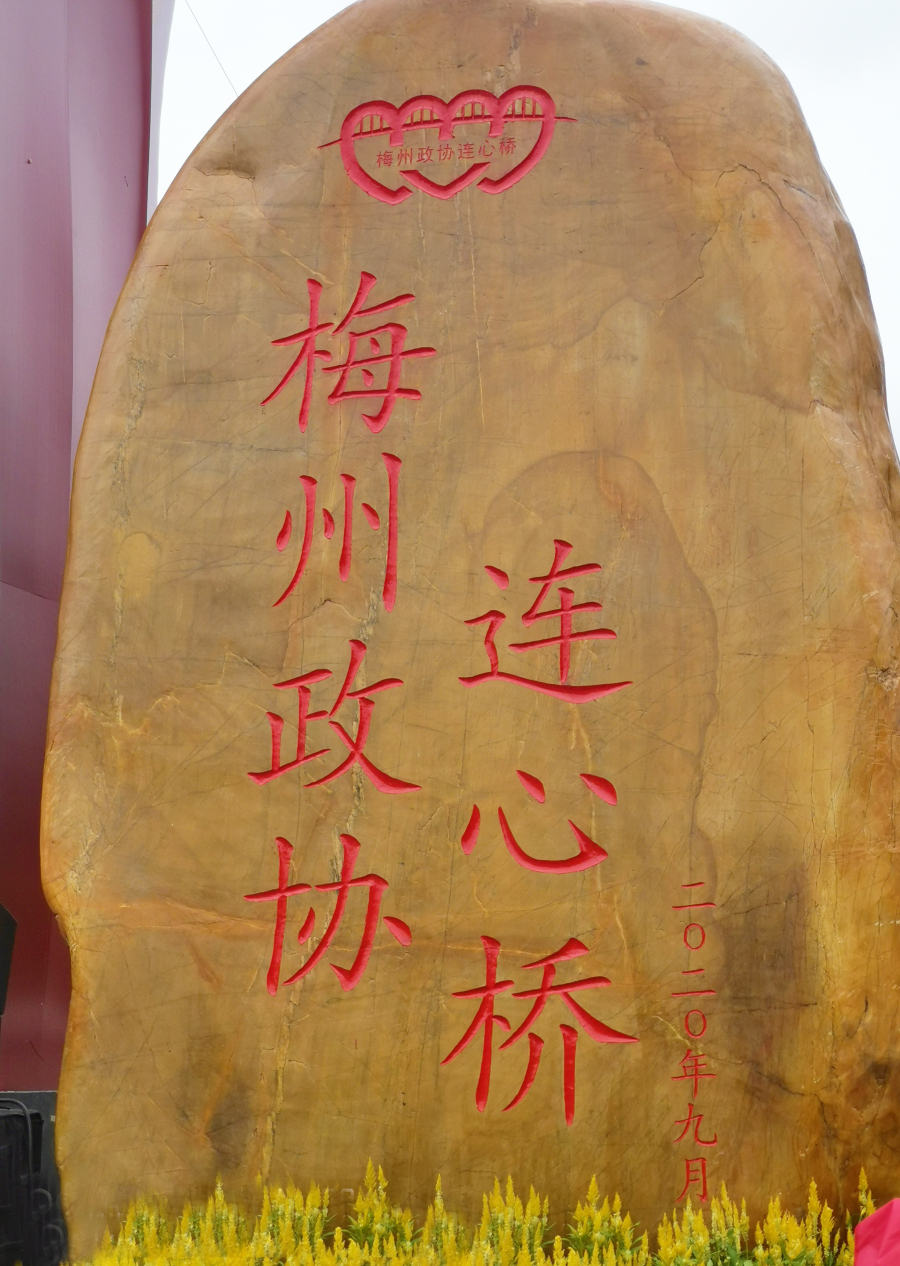 梅州政协连心桥
梅州政协
连心桥
二〇二〇年九月